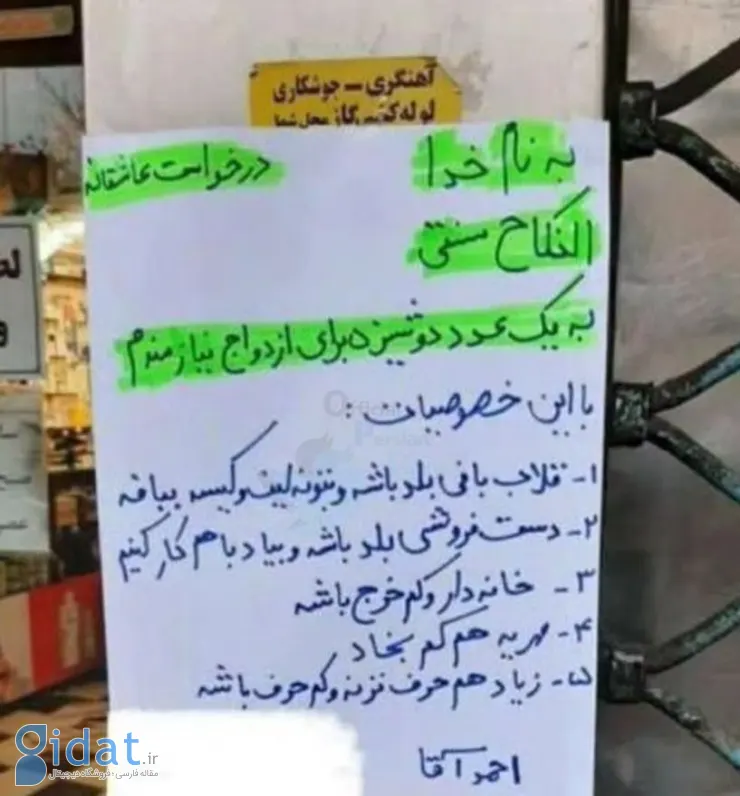 آهنگری – جوشکاری
لوله کشی گاز محل شما
به نام خدا
درخواست عاشقانه
النکاح سنتی
به یک عدد دوشیزه برای ازدواج نیازمندم
با این خصوصیات :
۱- قلاب بافی بلد باشه و بتونه لیف و کیسه ببافه
۲- دست فروشی بلد باشه و بیاد با هم کار کنیم
۳- خانه دار و کم خرج باشه
۴- مهریه هم کم بخاد
۵- زیاد هم حرف نزنه و کم حرف باشه
احمد آقا
gidat.ir
مقاله فارسی ؛ فروشگاه دیجیتال